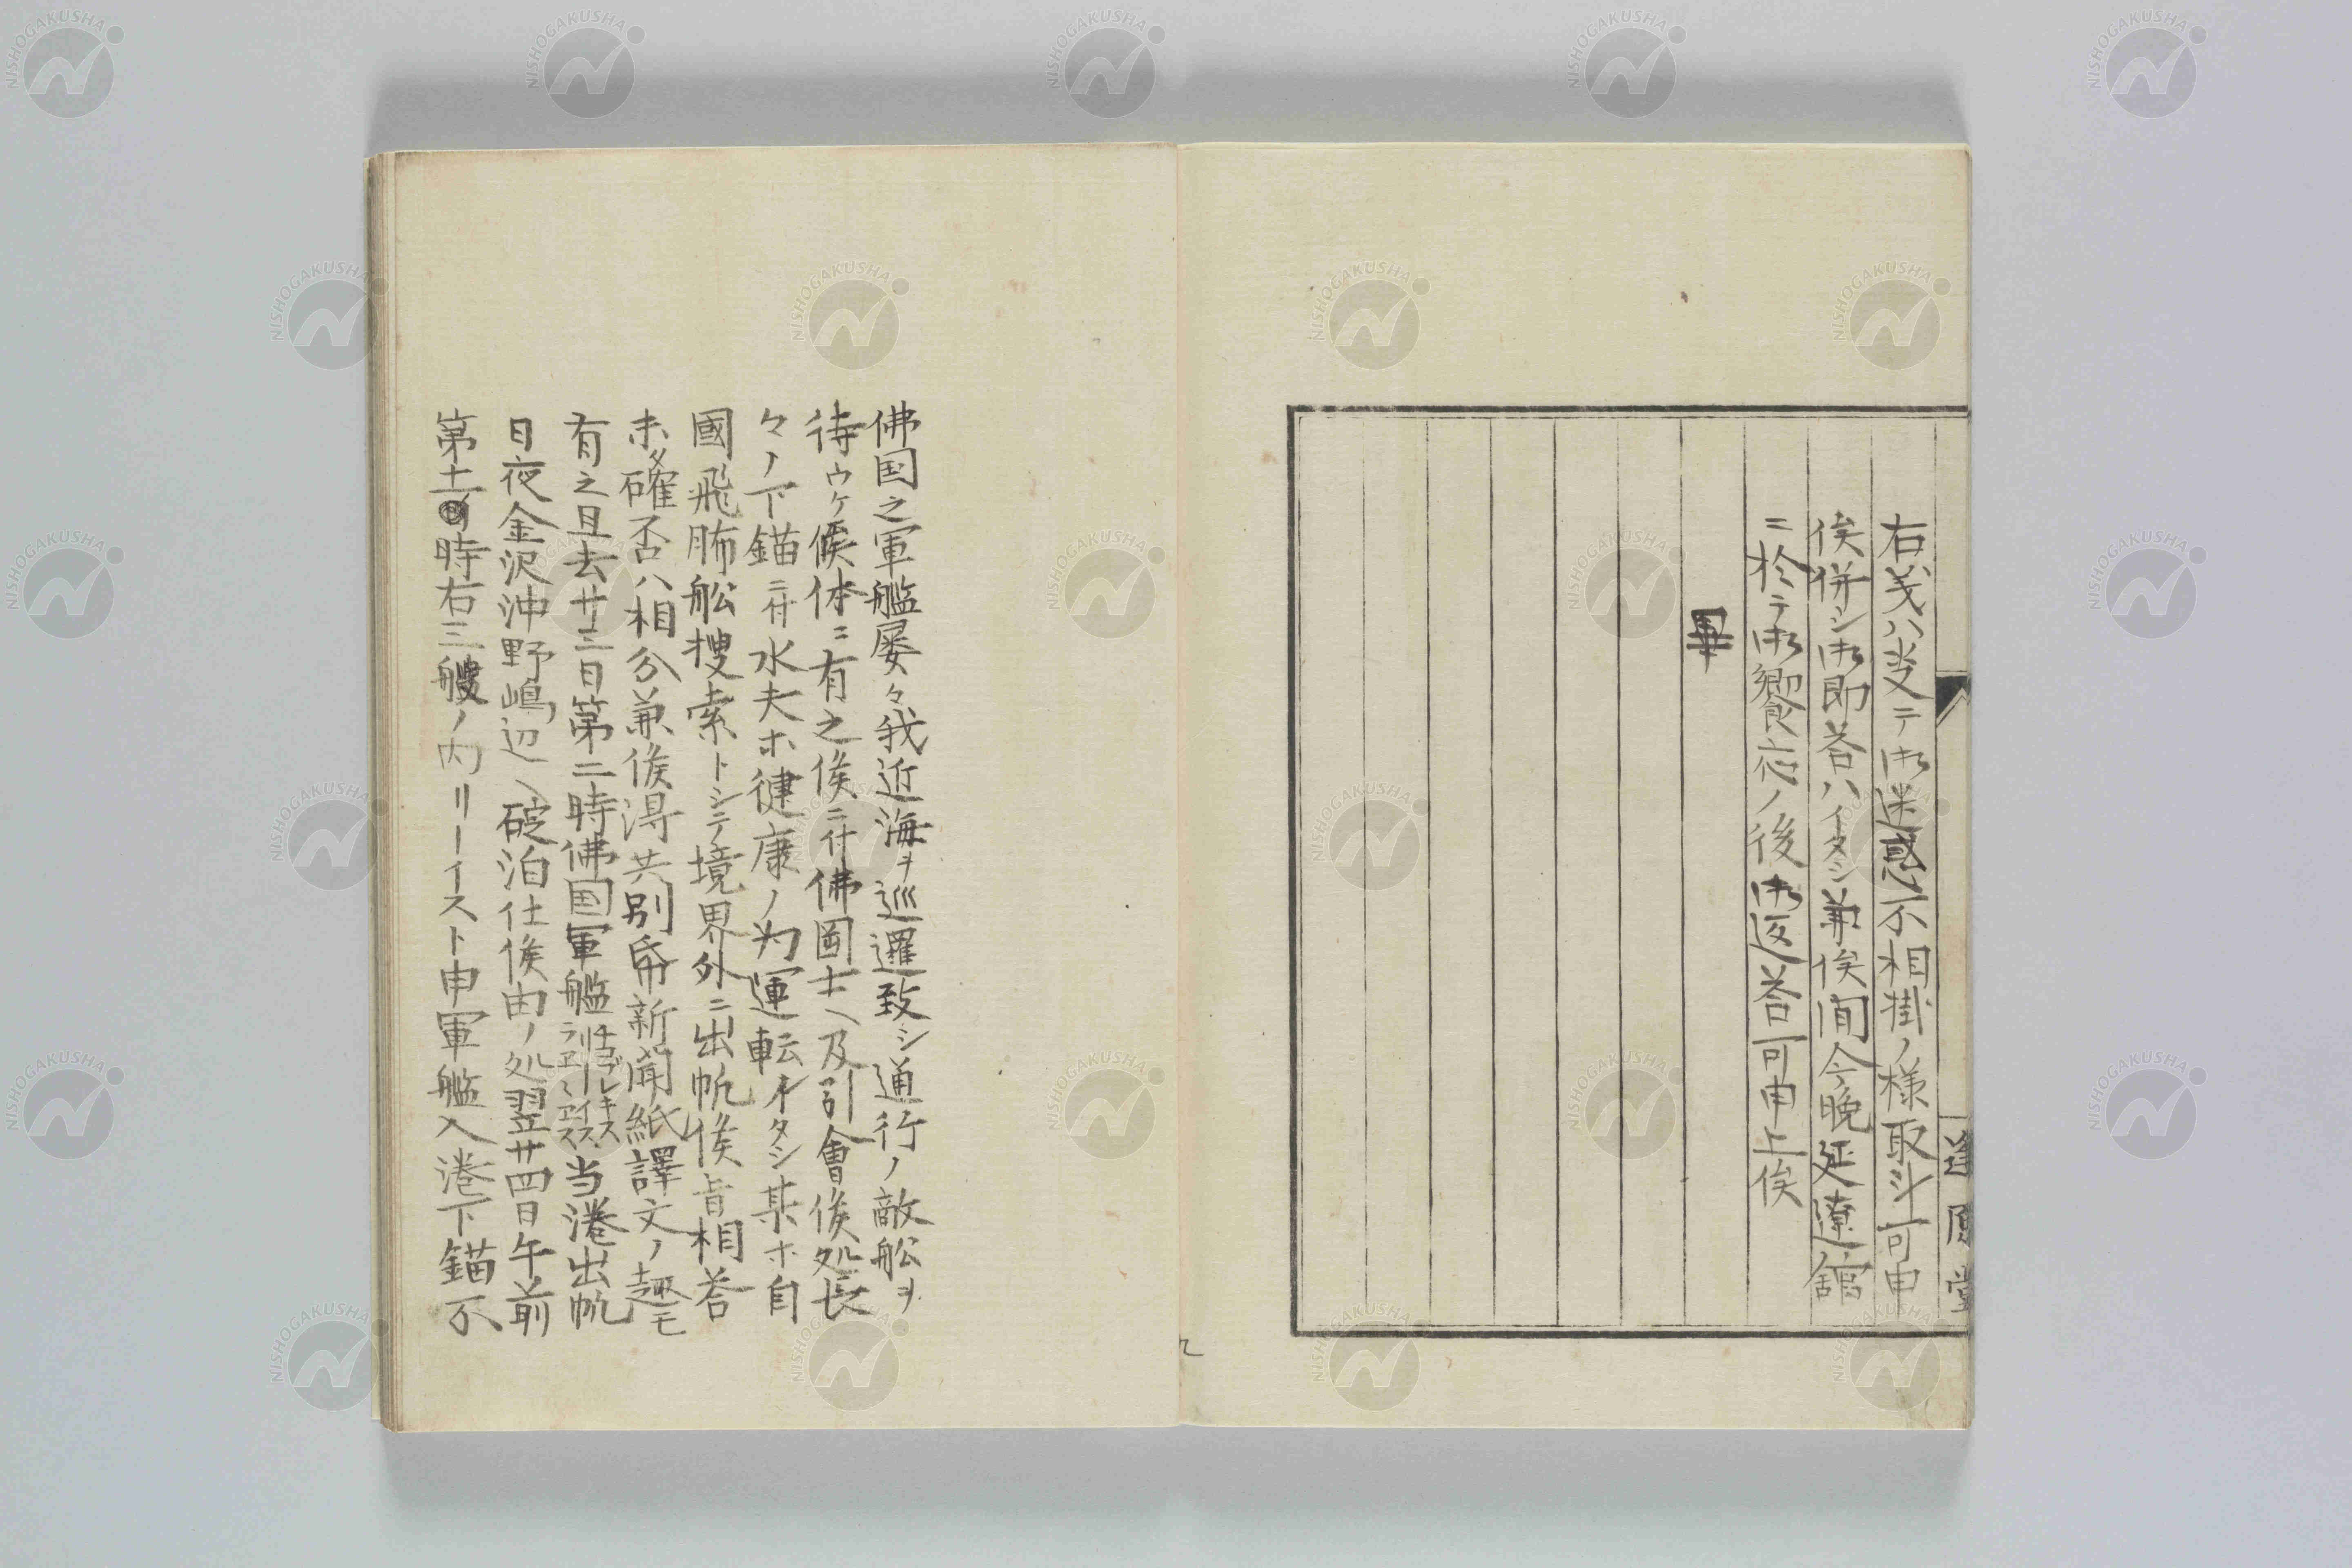 右義ハ当テ御迷惑不相掛ノ様取斗可申
候併シ御即答ハイタシ兼候間今晩延遼館
ニ於テ御饗応ノ後御返答可申上候
畢
逢原堂
佛国之軍艦屡々我近海ヲ巡邏致シ通行ノ敵舩ヲ
待ウケ候体ニ有之候ニ付佛岡士ヘ及引會候処長
々ノ下錨ニ付水夫ホ健康ノ为運転イタシ某ホ自
國飛脚舩捜索トシテ境界外ニ出帆候旨相答
未タ確否ハ相分兼候得共別帋新聞紙譯文ノ趣モ
有之且去廿三日第二時佛国軍艦当港出帆
日夜金沢沖野嶋辺ヘ碇泊仕候由ノ処翌廿四日午前
第十一時右三艘ノ内リーイスト申軍艦入港下錨不
NISHOGAKUSHA